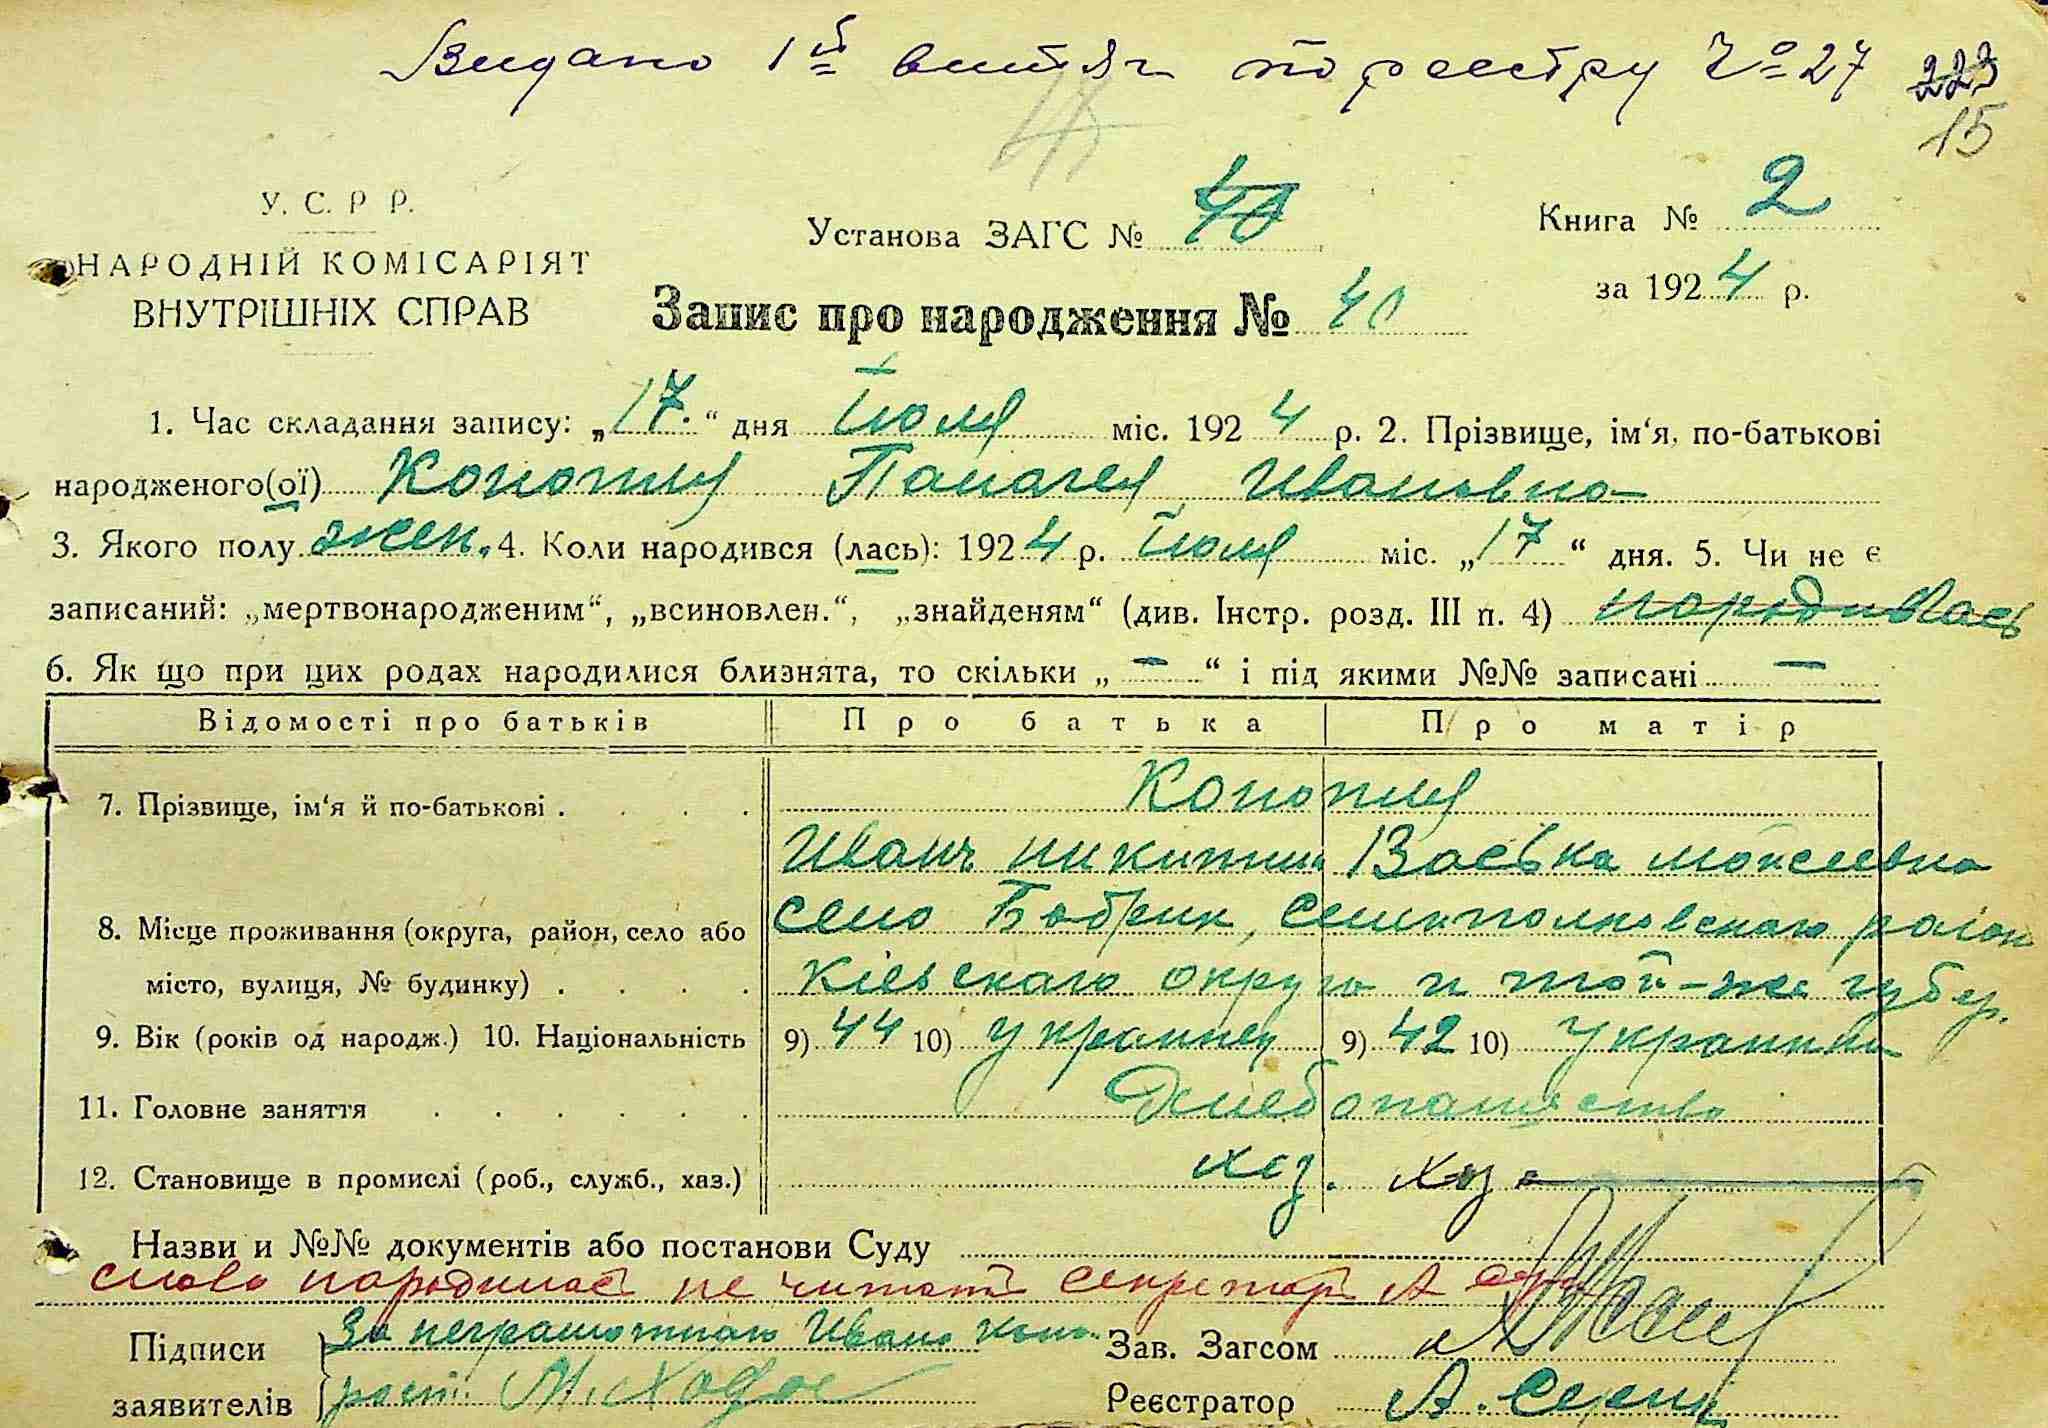 Видано 1й витяг по реестру № 27 223
15
У. С. Р Р.
НАРОДНІЙ КОМІСАРІЯТ
ВНУТРІШНІХ СПРАВ
Установа ЗАГС № 40
Книга № 2
за 1924 р.
Запис про народження № 40
1. Час складання запису: „17.“ дня Июля міс. 1924 р. 2. Прізвище, ім‘я, по-батькові
народженого(ої) Конопля Палагея Ивановна
3. Якого полу жен. 4. Коли народився (лась): 1924 р. Июля міс. „17“ дня. 5. Чи не є
записаний: „мертвонародженим“, „всиновлен.“, „знайденям“ (див. Інстр. розд. III п. 4) народилась
6. Як що при цих родах народилися близнята, то скільки „—“ і під якими №№ записані —
Відомості про батьків Про батька Про матір
7. Прізвище, ім‘я й по-батькові . . . . Конопля
Иван Никитин Васька Мойсеевна
8. Місце проживання (округа, район, село або село Бобрик, район
місто, вулиця, № будинку) . . . . Кіевскаго округа и той-же губер.
9. Вік (років од народж.) 10. Національність 9) 44 10) украинец 9) 42 10) Украинка
11. Головне заняття . . . . . . Хлебопашество
12. Становище в промислі (роб., служб., хаз.) хоз. хоз.
Назви и №№ документів або постанови Суду
слово народилась не читать секретарь А
Підписи За неграмотнаго Ивана Коно- Зав. Загсом
заявителів расп. М. Ходос Реєстратор А.